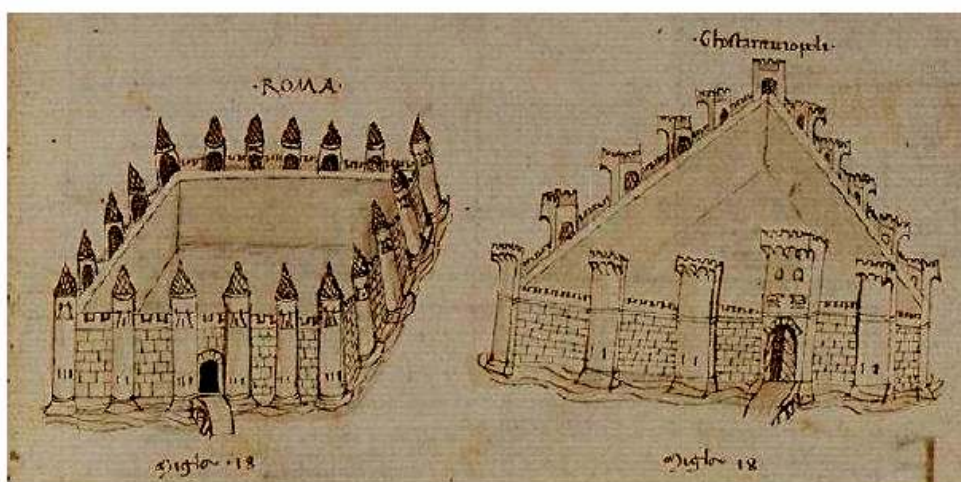 ·ROMA·
·Chostantinopoli·
miglia ·18
miglia 18